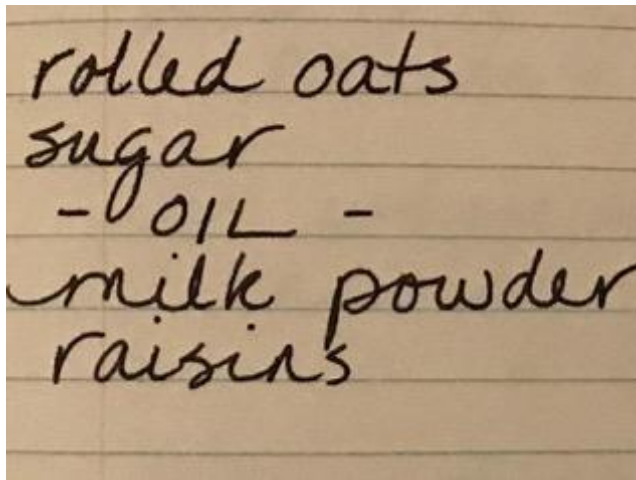 rolled oats
sugar
- OIL -
milk powder
raisins